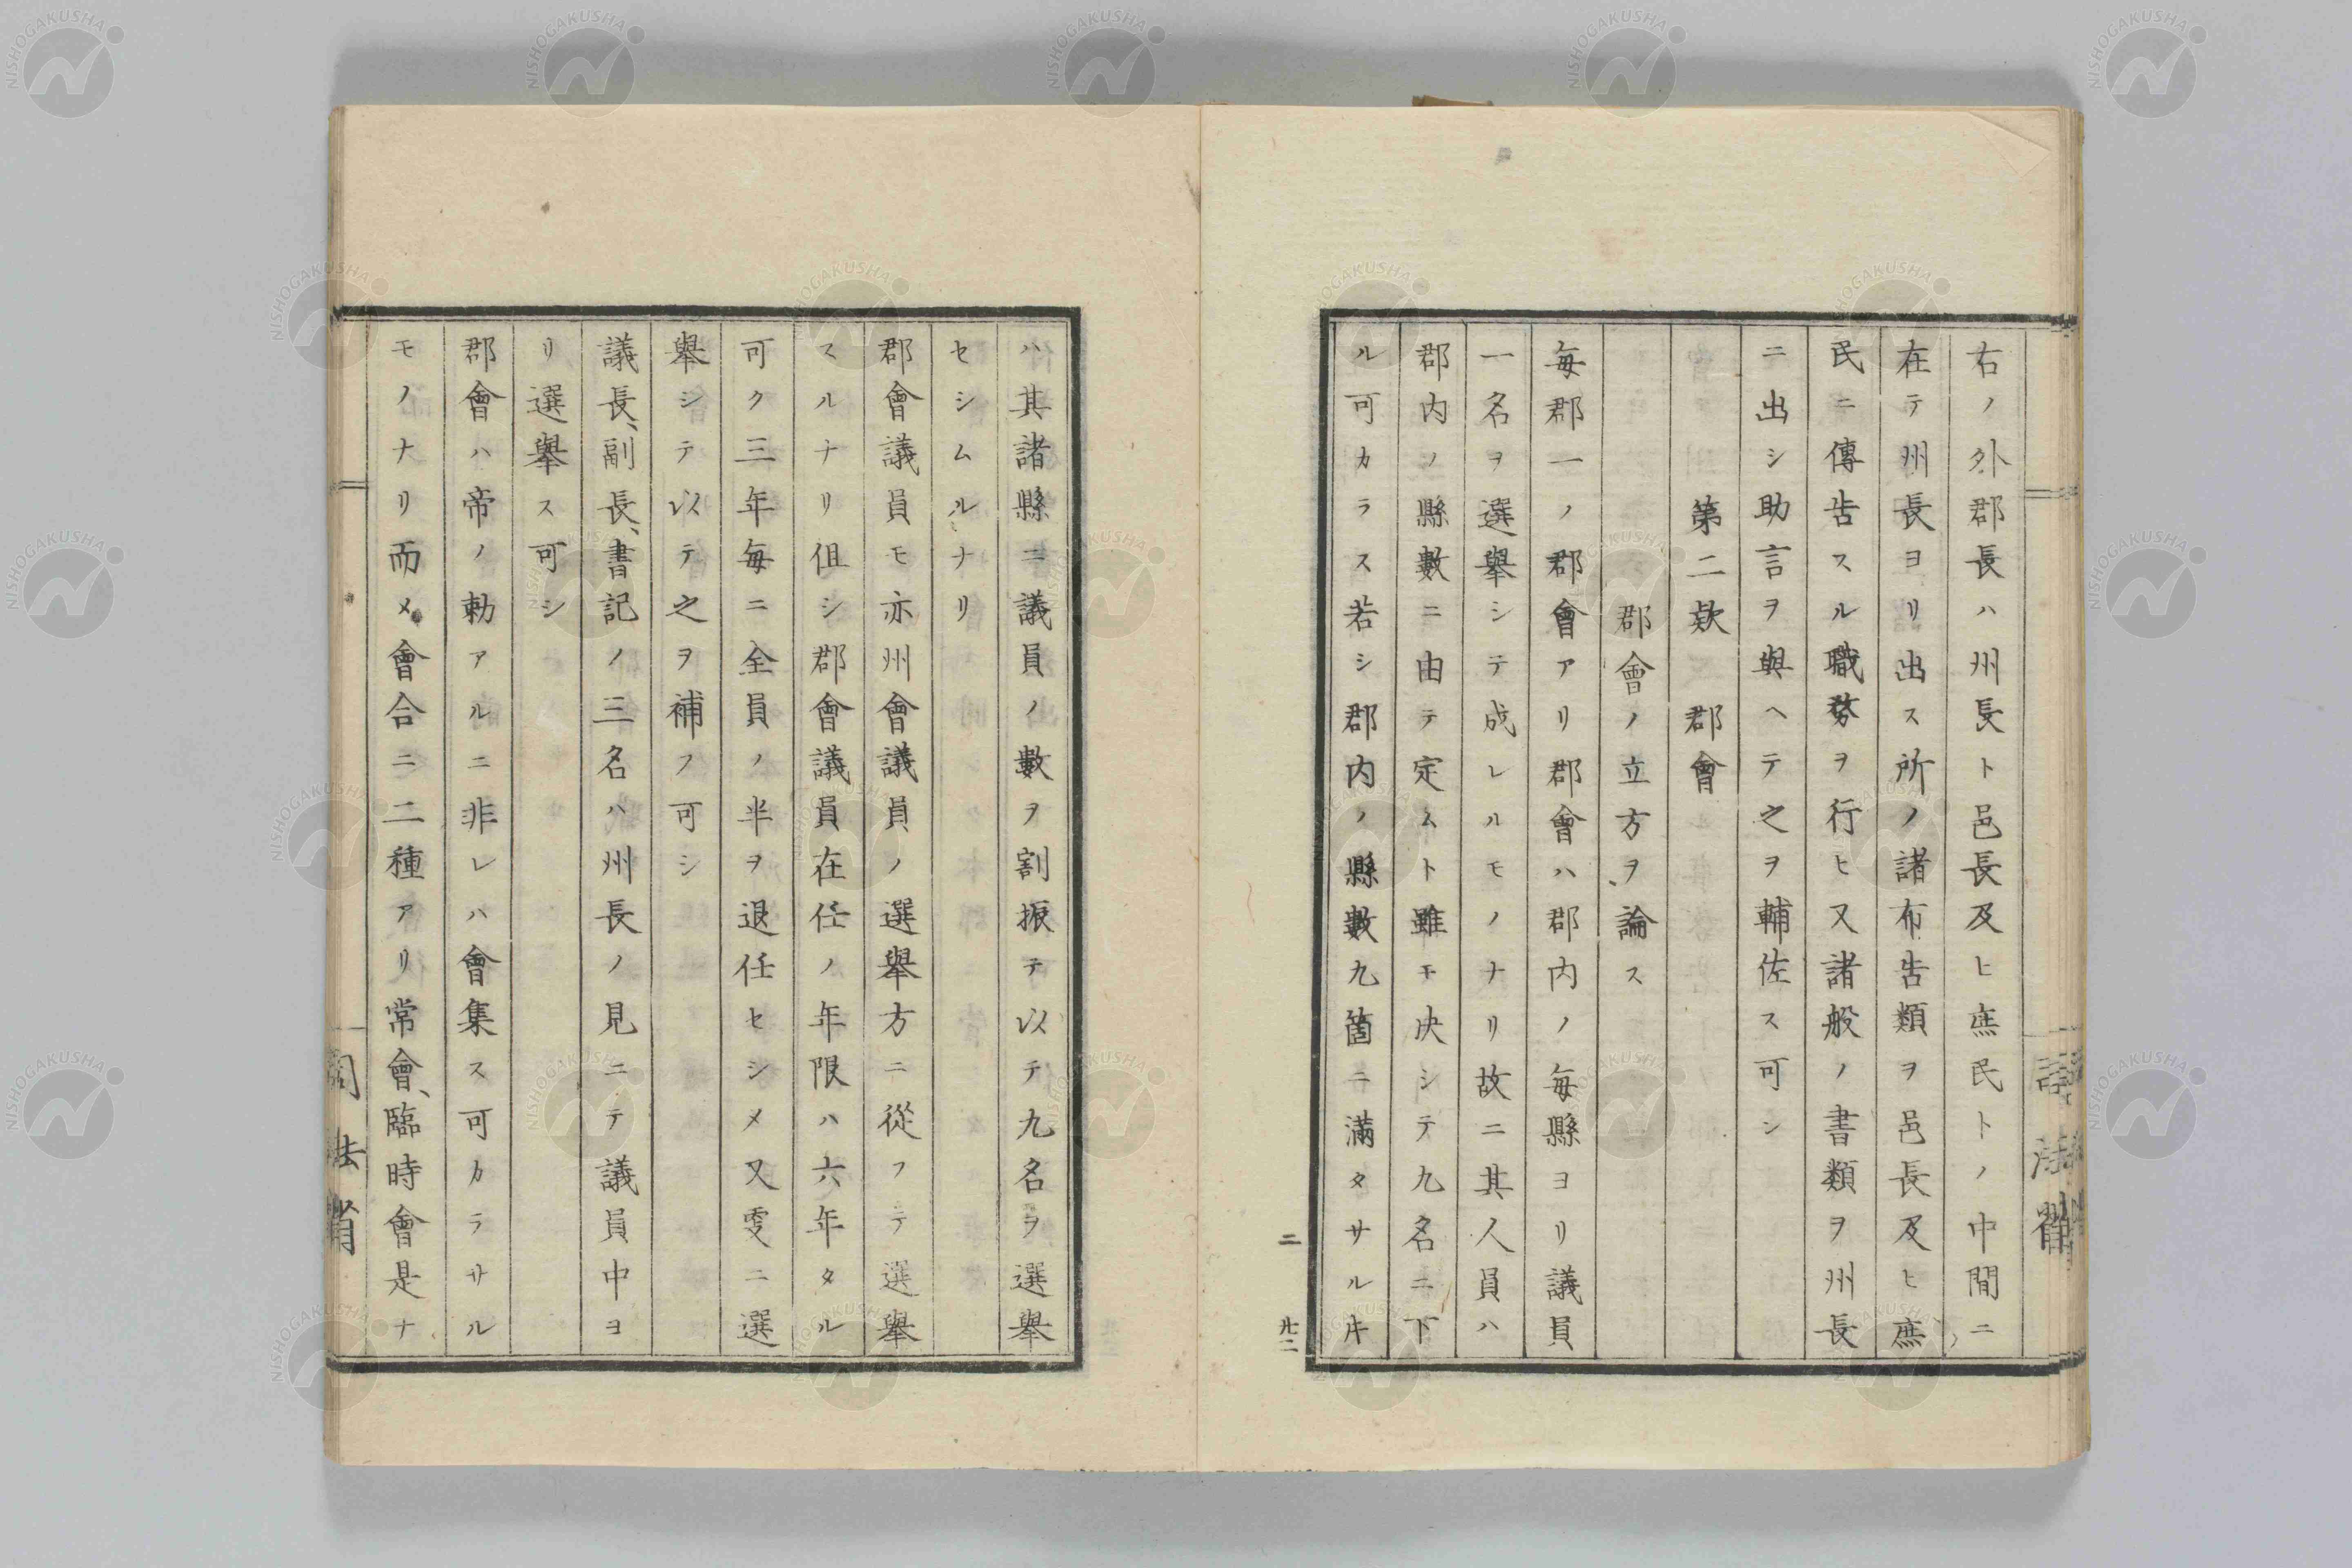 右ノ外郡長ハ州長ト邑長及ヒ庶民トノ中間ニ
在テ州長ヨリ出ス所ノ諸布告類ヲ邑長及ヒ庶
民ニ傳告スル職務ヲ行ヒ又諸般ノ書類ヲ州長
ニ出シ助言ヲ與ヘテ之ヲ輔佐ス可シ
第二款 郡會
郡會ノ立方ヲ論ス
毎郡一ノ郡會アリ郡會ハ郡内ノ毎縣ヨリ議員
一名ヲ選擧シテ成レルモノナリ故ニ其人員ハ
郡内ノ縣數ニ由テ定ムト雖モ决シテ九名ニ下
ル可カラス若シ郡内ノ縣數九箇ニ滿タサルキ
二 廿二
ハ其諸縣ニ議員ノ數ヲ割振テ以テ九名ヲ選擧
セシムルナリ
郡會議員モ亦州會議員ノ選擧方ニ從フテ選擧
スルナリ伹シ郡會議員在任ノ年限ハ六年タル
可ク三年毎ニ全員ノ半ヲ退任セシメ又更ニ選
擧シテ以テ之ヲ補フ可シ
議長、副長、書記ノ三名ハ州長ノ見ニテ議員中ヨ
リ選擧ス可シ
郡會ハ帝ノ勅アルニ非レハ會集ス可カラサル
モノナリ而メ會合ニ二種アリ常會、臨時會是ナ
司法省
NISHOGAKUSHA